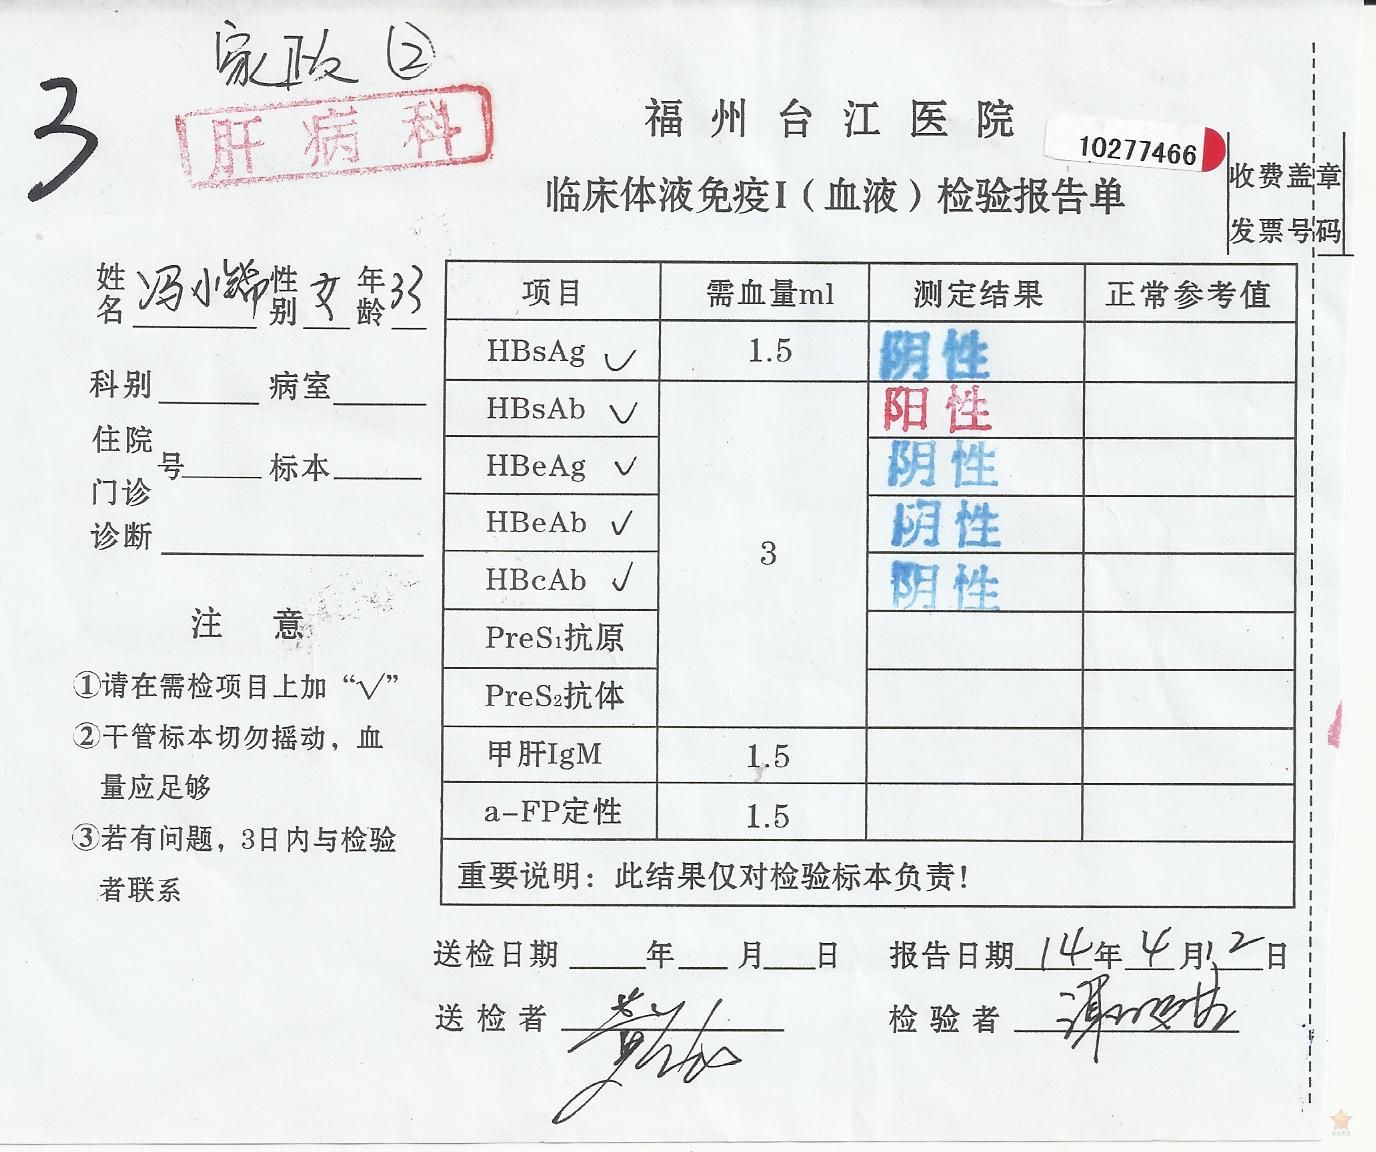 家政②
3
肝病科
福州台江医院
10277466
收费盖章
发票号码
临床体液免疫I（血液）检验报告单
姓名 冯小锦 性别 女 年龄 33
科别 病室
住院
门诊 号 标本
诊断
注 意
①请在需检项目上加“√”
②干管标本切勿摇动，血
量应足够
③若有问题，3日内与检验
者联系
项目 需血量ml 测定结果 正常参考值
HBsAg √ 1.5 阴性
HBsAb √ 阳性
HBeAg √ 阴性
HBeAb √ 阴性
3
HBcAb √ 阴性
PreS1抗原
PreS2抗体
甲肝IgM 1.5
a-FP定性 1.5
重要说明：此结果仅对检验标本负责！
送检日期 年 月 日 报告日期 14年4月12日
送检者 检验者